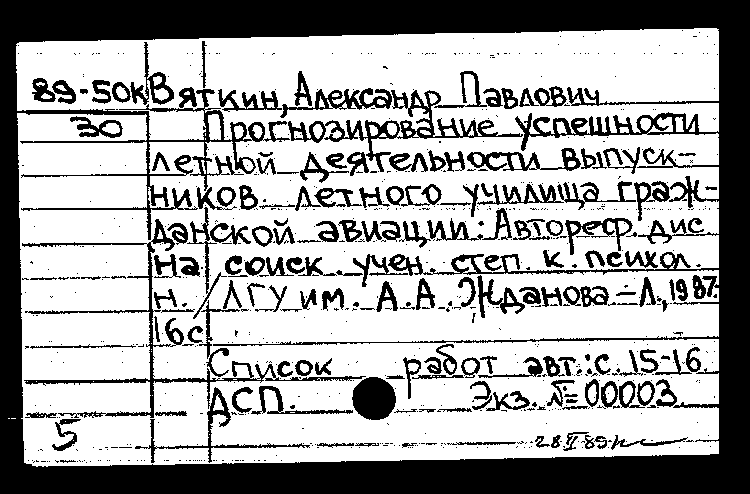 89-50к Вяткин, Александр Павлович
30 Прогнозирование успешности
летной деятельности выпуск-
ников летного училища граж-
данской авиации: Автореф. дис
на соиск. учен. степ. к. психол.
н. / ЛГУ им. А.А. Жданова.-Л., 1987.
16с.
Список работ авт.: с. 15-16.
ДСП. Экз. №00003.
5 28 II 89